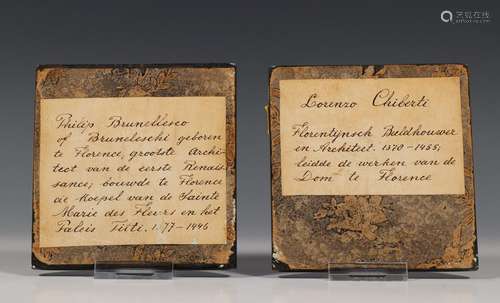 Philip Brunellesco
of Bruneleschi geboren
te Florence, grootste Archi-
tect van de eerste Renais-
sance; bouwde te Florence
de Koepel van de Sainte
Marie des Fleurs en het
Paleis Titte. 1377-1446
Lorenzo Chiberti
Florentijnsch Beeldhouwer
en Architect. 1370-1455;
leidde de werken van de
Dom te Florence